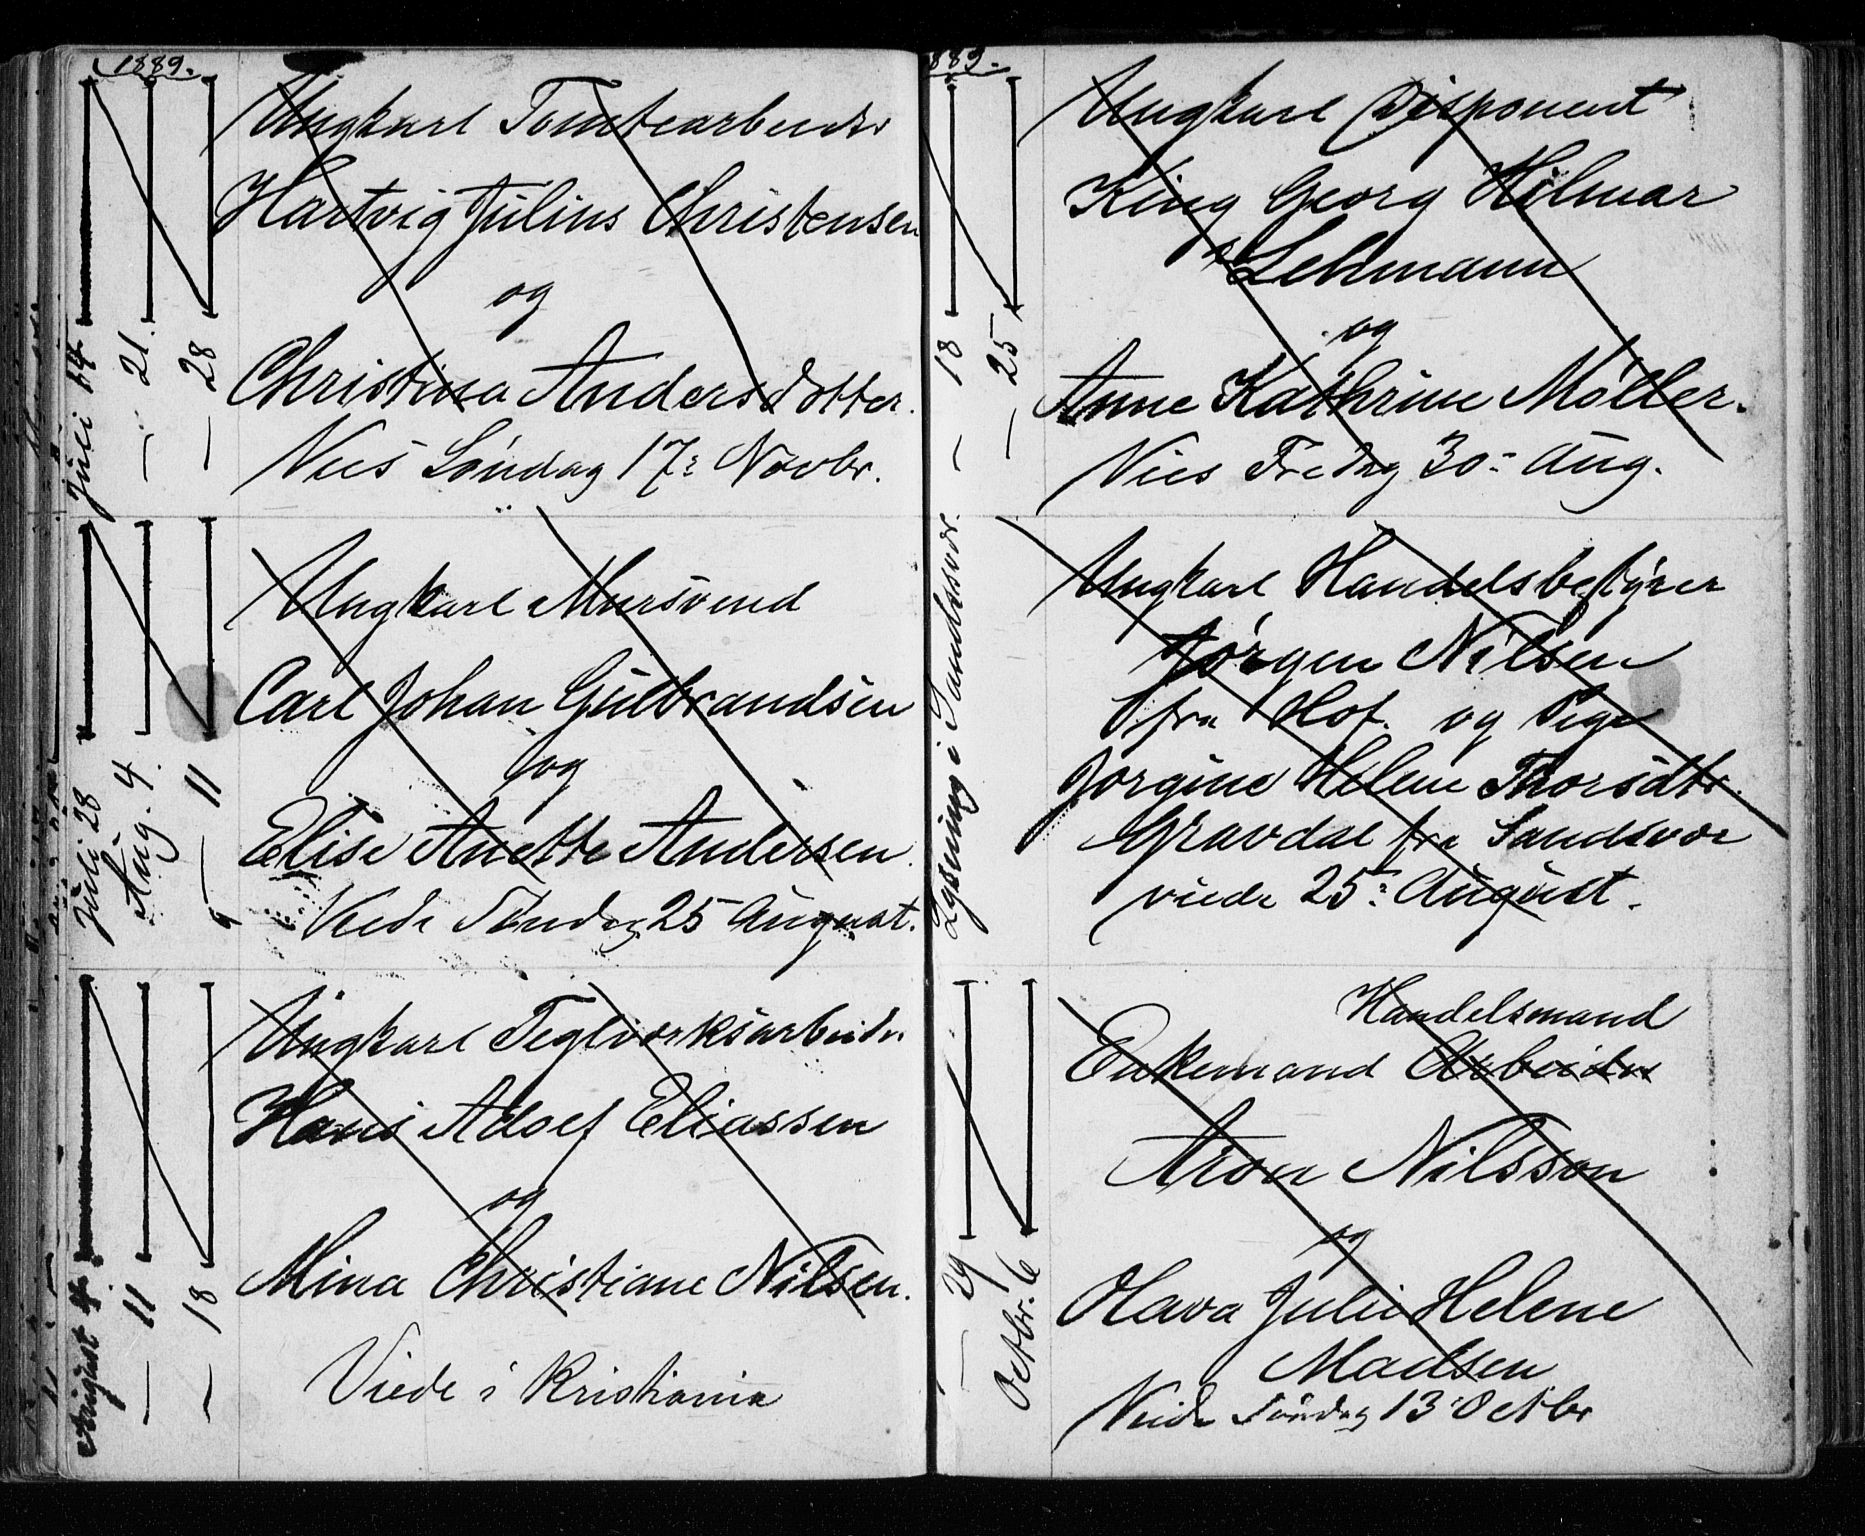 1889.
Juli 14
— 21.
— 28
Ungkarl Tomtearbeider
Hartvig Julius Christensen
og
Christina Andersdotter.
Vies Söndag 17: Novbr.
Juli 28
Aug. 4
— 11
Ungkarl Mursvend
Carl Johan Gulbrandsen
og
Elise Anette Andersen.
Viede Søndag 25 August.
August 4
— 11
— 18
Ungkarl Teglværksarbeider
Hans Adolf Eliassen
og
Mina Christiane Nilsen.
Viede i Kristiania
889.
— 18
— 25
Ungkarl Disponent
King Georg Hilmar
Lehmann
og
Anne Kathrine Møller.
Vies Fredag 30: Aug.
Lysning i Sandesvær.
Ungkarl Handelsbestyrer
Jørgen Nilsen
fra Hof. og Pige
Jørgine Helene Thorsdtr.
Gravdal fra Sandsvær
viede 25: August.
— 29
Octbr. 6
Handelsmand
Enkemand Arbeider
Aron Nilsson
og
Olava Julie Helene
Madsen
Viede Søndag 13 Octbr